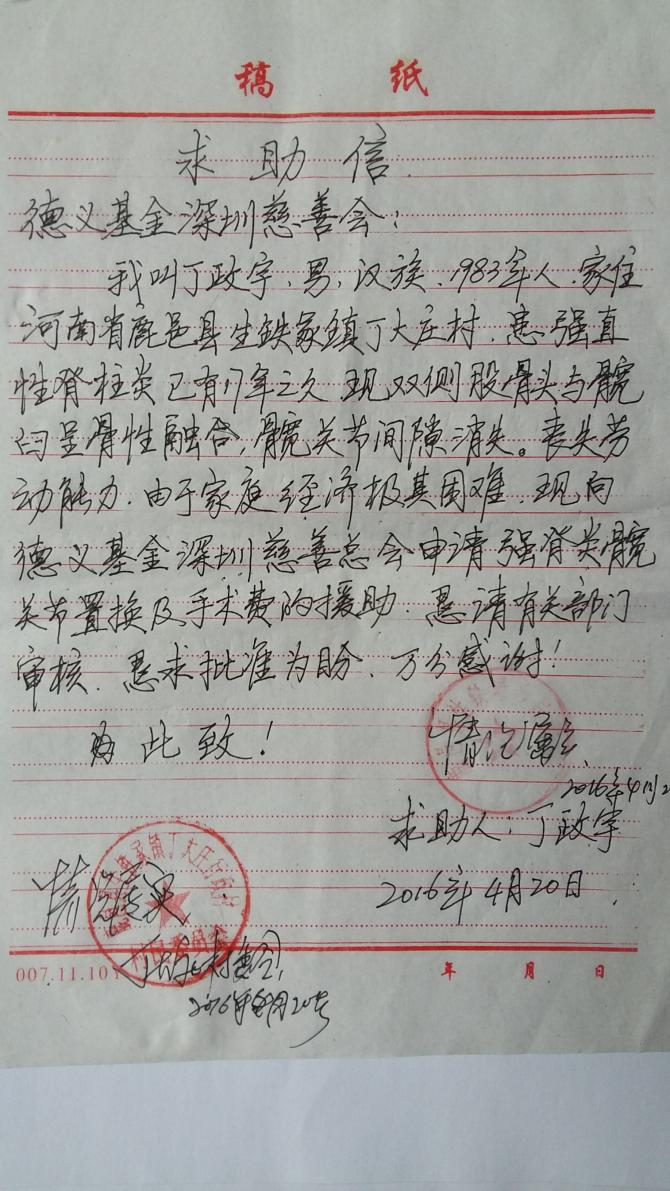 稿 纸
求助信.
德义基金深圳慈善会:
我叫丁政宇,男,汉族,1983年人,家住
河南省鹿邑县生铁冢镇丁大庄村,患强直
性脊柱炎已有17年之久 现双侧股骨头与髋
臼呈骨性融合,髋关节间隙消失。丧失劳
动能力.由于家庭经济极其困难,现向
德义基金深圳慈善总会申请强脊炎髋
关节置换及手术费的援助.恳请有关部门
审核.恳求批准为盼.万分感谢!
为此致!
情况属实
2016年4月2
求助人:丁政宇
2016年4月20日.
情况属实
丁大庄村委会
2016年4月20号
007.11.10
年 月 日